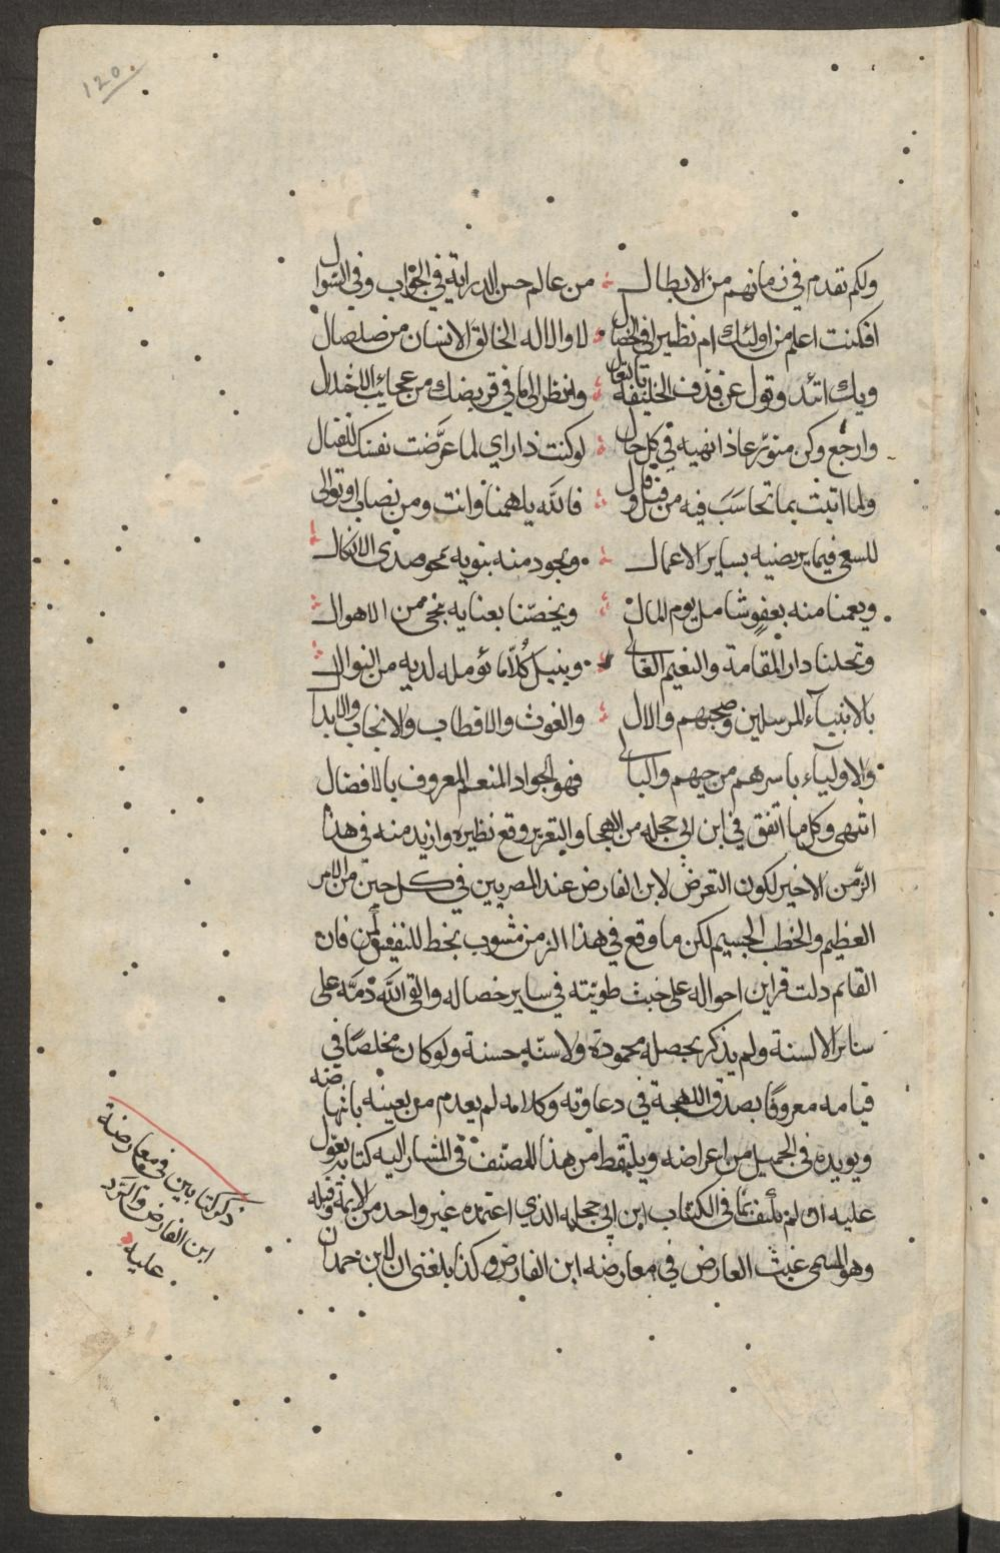 120
ولكم تقدم في زمانهم من الابطال من عالم حسن الدراية في الجواب وفي السوال
افكنت اعلم من اولئك ام نظيرا في الخصال لا والاله الخالق الانسان من صلصال
ويك اتئد وتول عن قذف الخليفة وانظر الى ما في قريضك من عجائب
وارجع وكن متوئرعا ذا نهيه في كل حال لو كنت ذا راي لما عرضت نفسك للقتال
ولما اتيت بما تحاسب فيه من قيل وقال فالله يلهمنا وانت ومن نصافى او توالى
للسعي فيما يرتضيه بساير الاعمال ويجود منه بتوبه تمحو صدى الاتكال
ويعمنا منه بعفو شامل يوم المال ويخصنا بعنايه تنجي من الاهوال
وتحلنا دار المقامة والنعيم الغالى وينيل كلا ما نؤمله لديه من النوال
بالانبياء المرسلين وصحبهم والال والغوث والاقطاب والانجاب والابدا
والاولياء باسرهم من حيهم والبالى فهو الجواد المنعم المعروف بالافضال
انتهى وكل ما اتفق في ابن ابي حجله من الهجا والتعزير وقع نظيره وازيد منه في هذا
الزمن الاخير لكون التعرض لابن الفارض عند المصريين في كل حين من الامر
العظيم والخطب الجسيم لكن ما وقع في هذا الزمن مشوب بخط للنفس فان
القائم دلت قراين احواله على خبث طويته في ساير خصاله والقى الله ذمه على
ساير الالسنة ولم يذكر بخصله محمودة ولا سنه حسنة ولو كان مخلصا في
قيامه معروفا بصدق اللهجة في دعاوته وكلامه لم يعدم من يعينه بانهاضه
ويويده في الجميل من اعراضه ويلتقط من هذا المصنف في المشار اليه كتابه يعول
عليه او لم يلف بما في الكتاب ابن ابي حجله الذي اعتمده غير واحد من الايمة وقبله
وهو المسمى غيث العارض في معارضه ابن الفارض وكذا بلغني ان لابن حمدان
ذكر كتابين في معارضة
ابن الفارض والرد
عليه